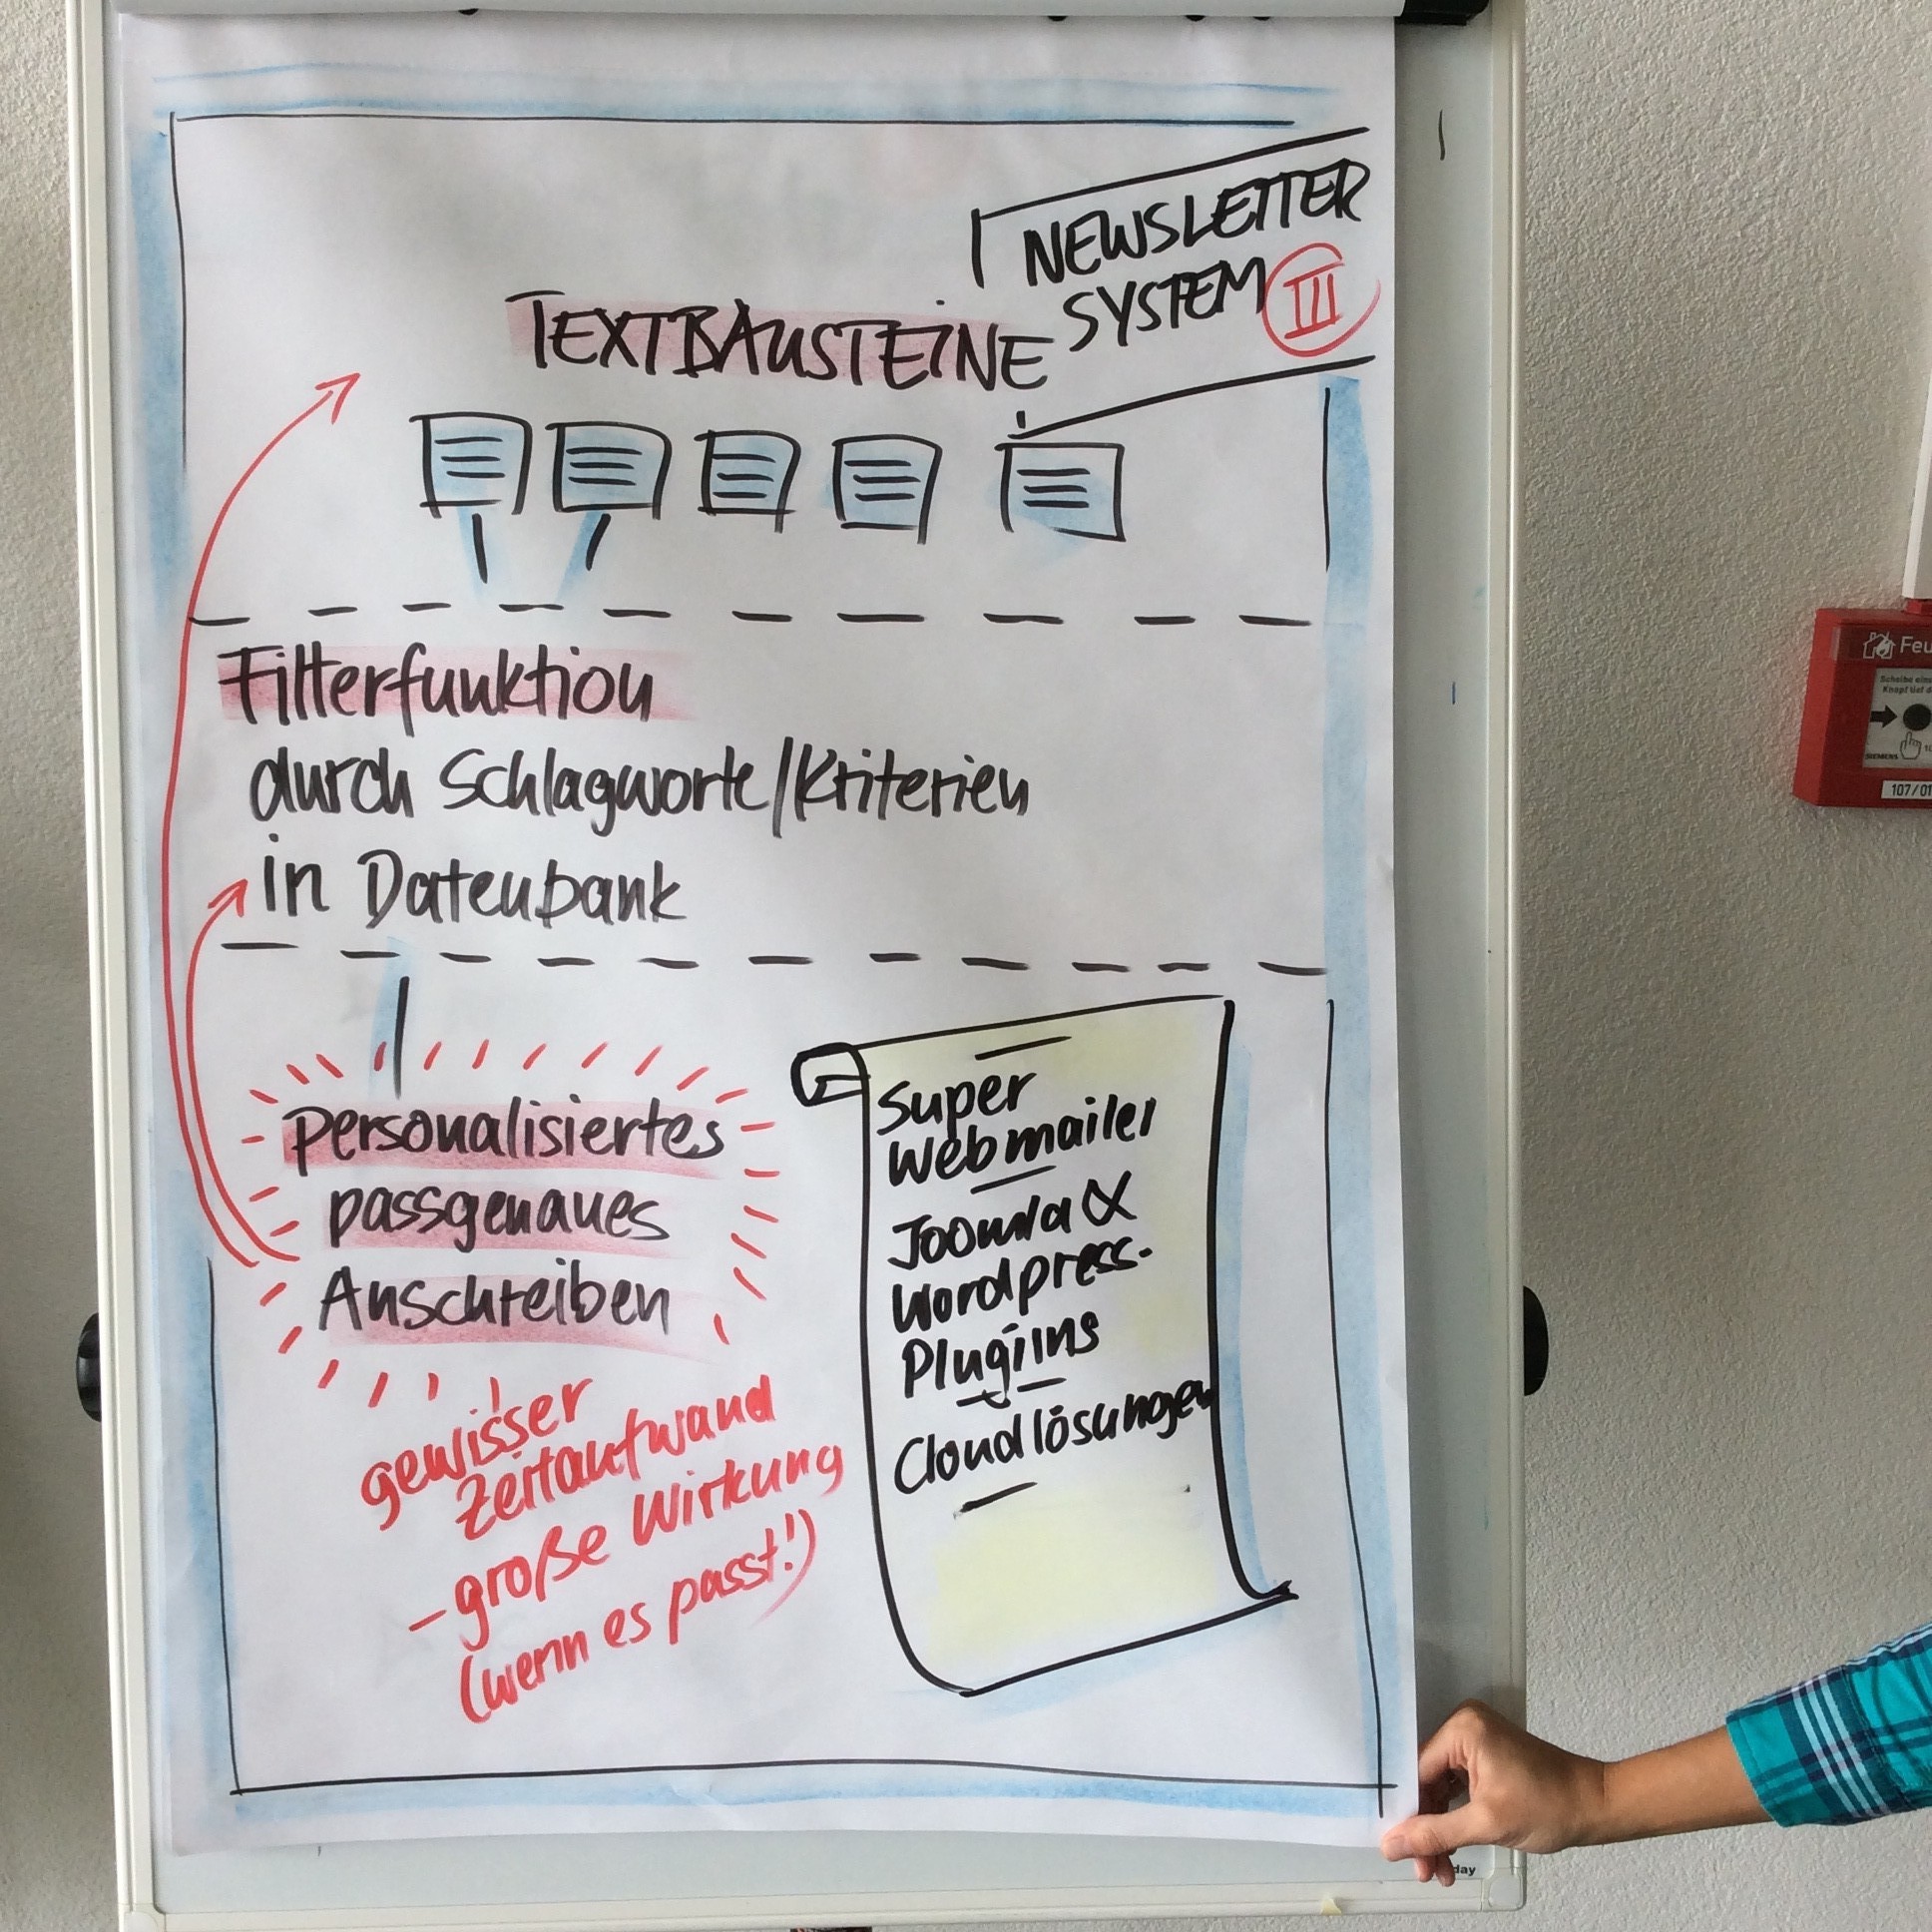 NEWSLETTER
SYSTEM III
TEXTBAUSTEINE
Filterfunktion
durch Schlagworte/Kriterien
in Datenbank
personalisiertes
passgenaues
Anschreiben
gewisser
Zeitaufwand
– große Wirkung
(wenn es passt!)
Super
Webmailer
Joomla &
Wordpress-
Plugiins
Cloudlösungen
Feu
Scheibe eins
Knopf tief d
SIEMENS
107/01
day